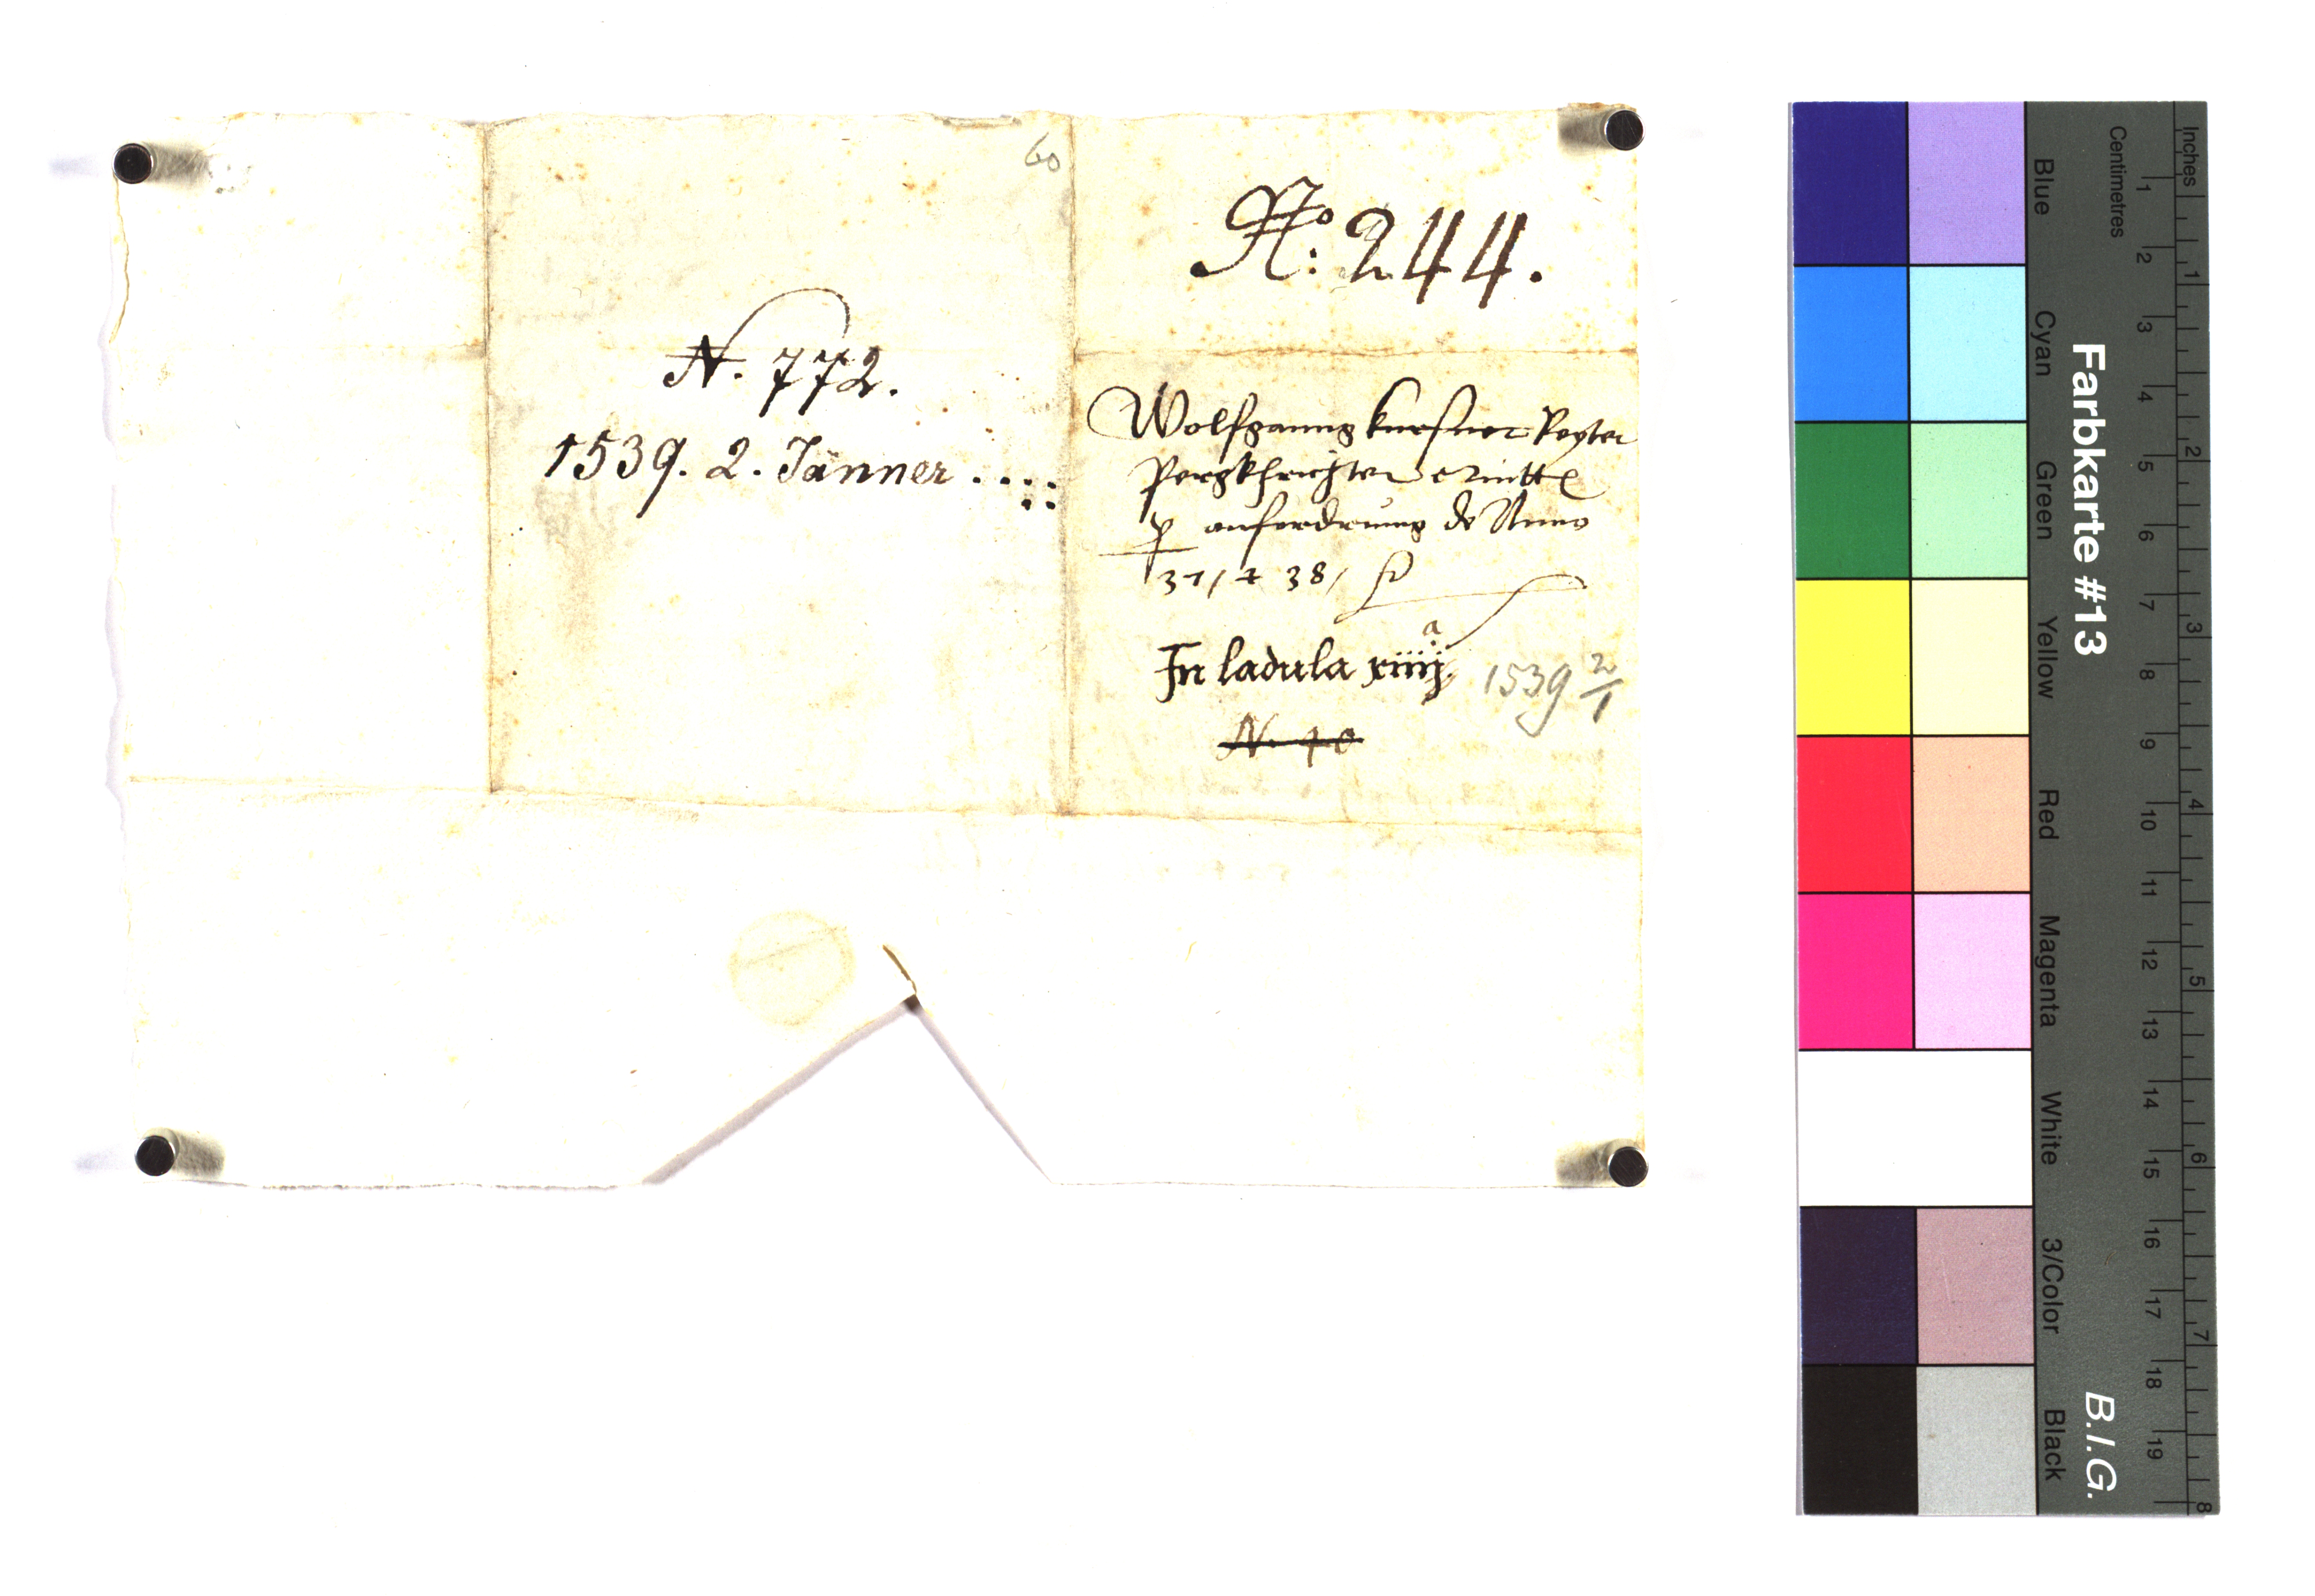 60
No: 244.
N. 772.
1539. 2. Jänner . . . .
Wolfganng kursner
Pergkhrichter
p anfordrung de Anno
37 / & 38 /
In ladula xiiij. a
1539 2/1
N. 40
Farbkarte #13
B.I.G.
Inches
Centimetres
1 2 3 4 5 6 7 8 9 10 11 12 13 14 15 16 17 18 19
1 2 3 4 5 6 7 8
Blue
Cyan
Green
Yellow
Red
Magenta
White
3/Color
Black